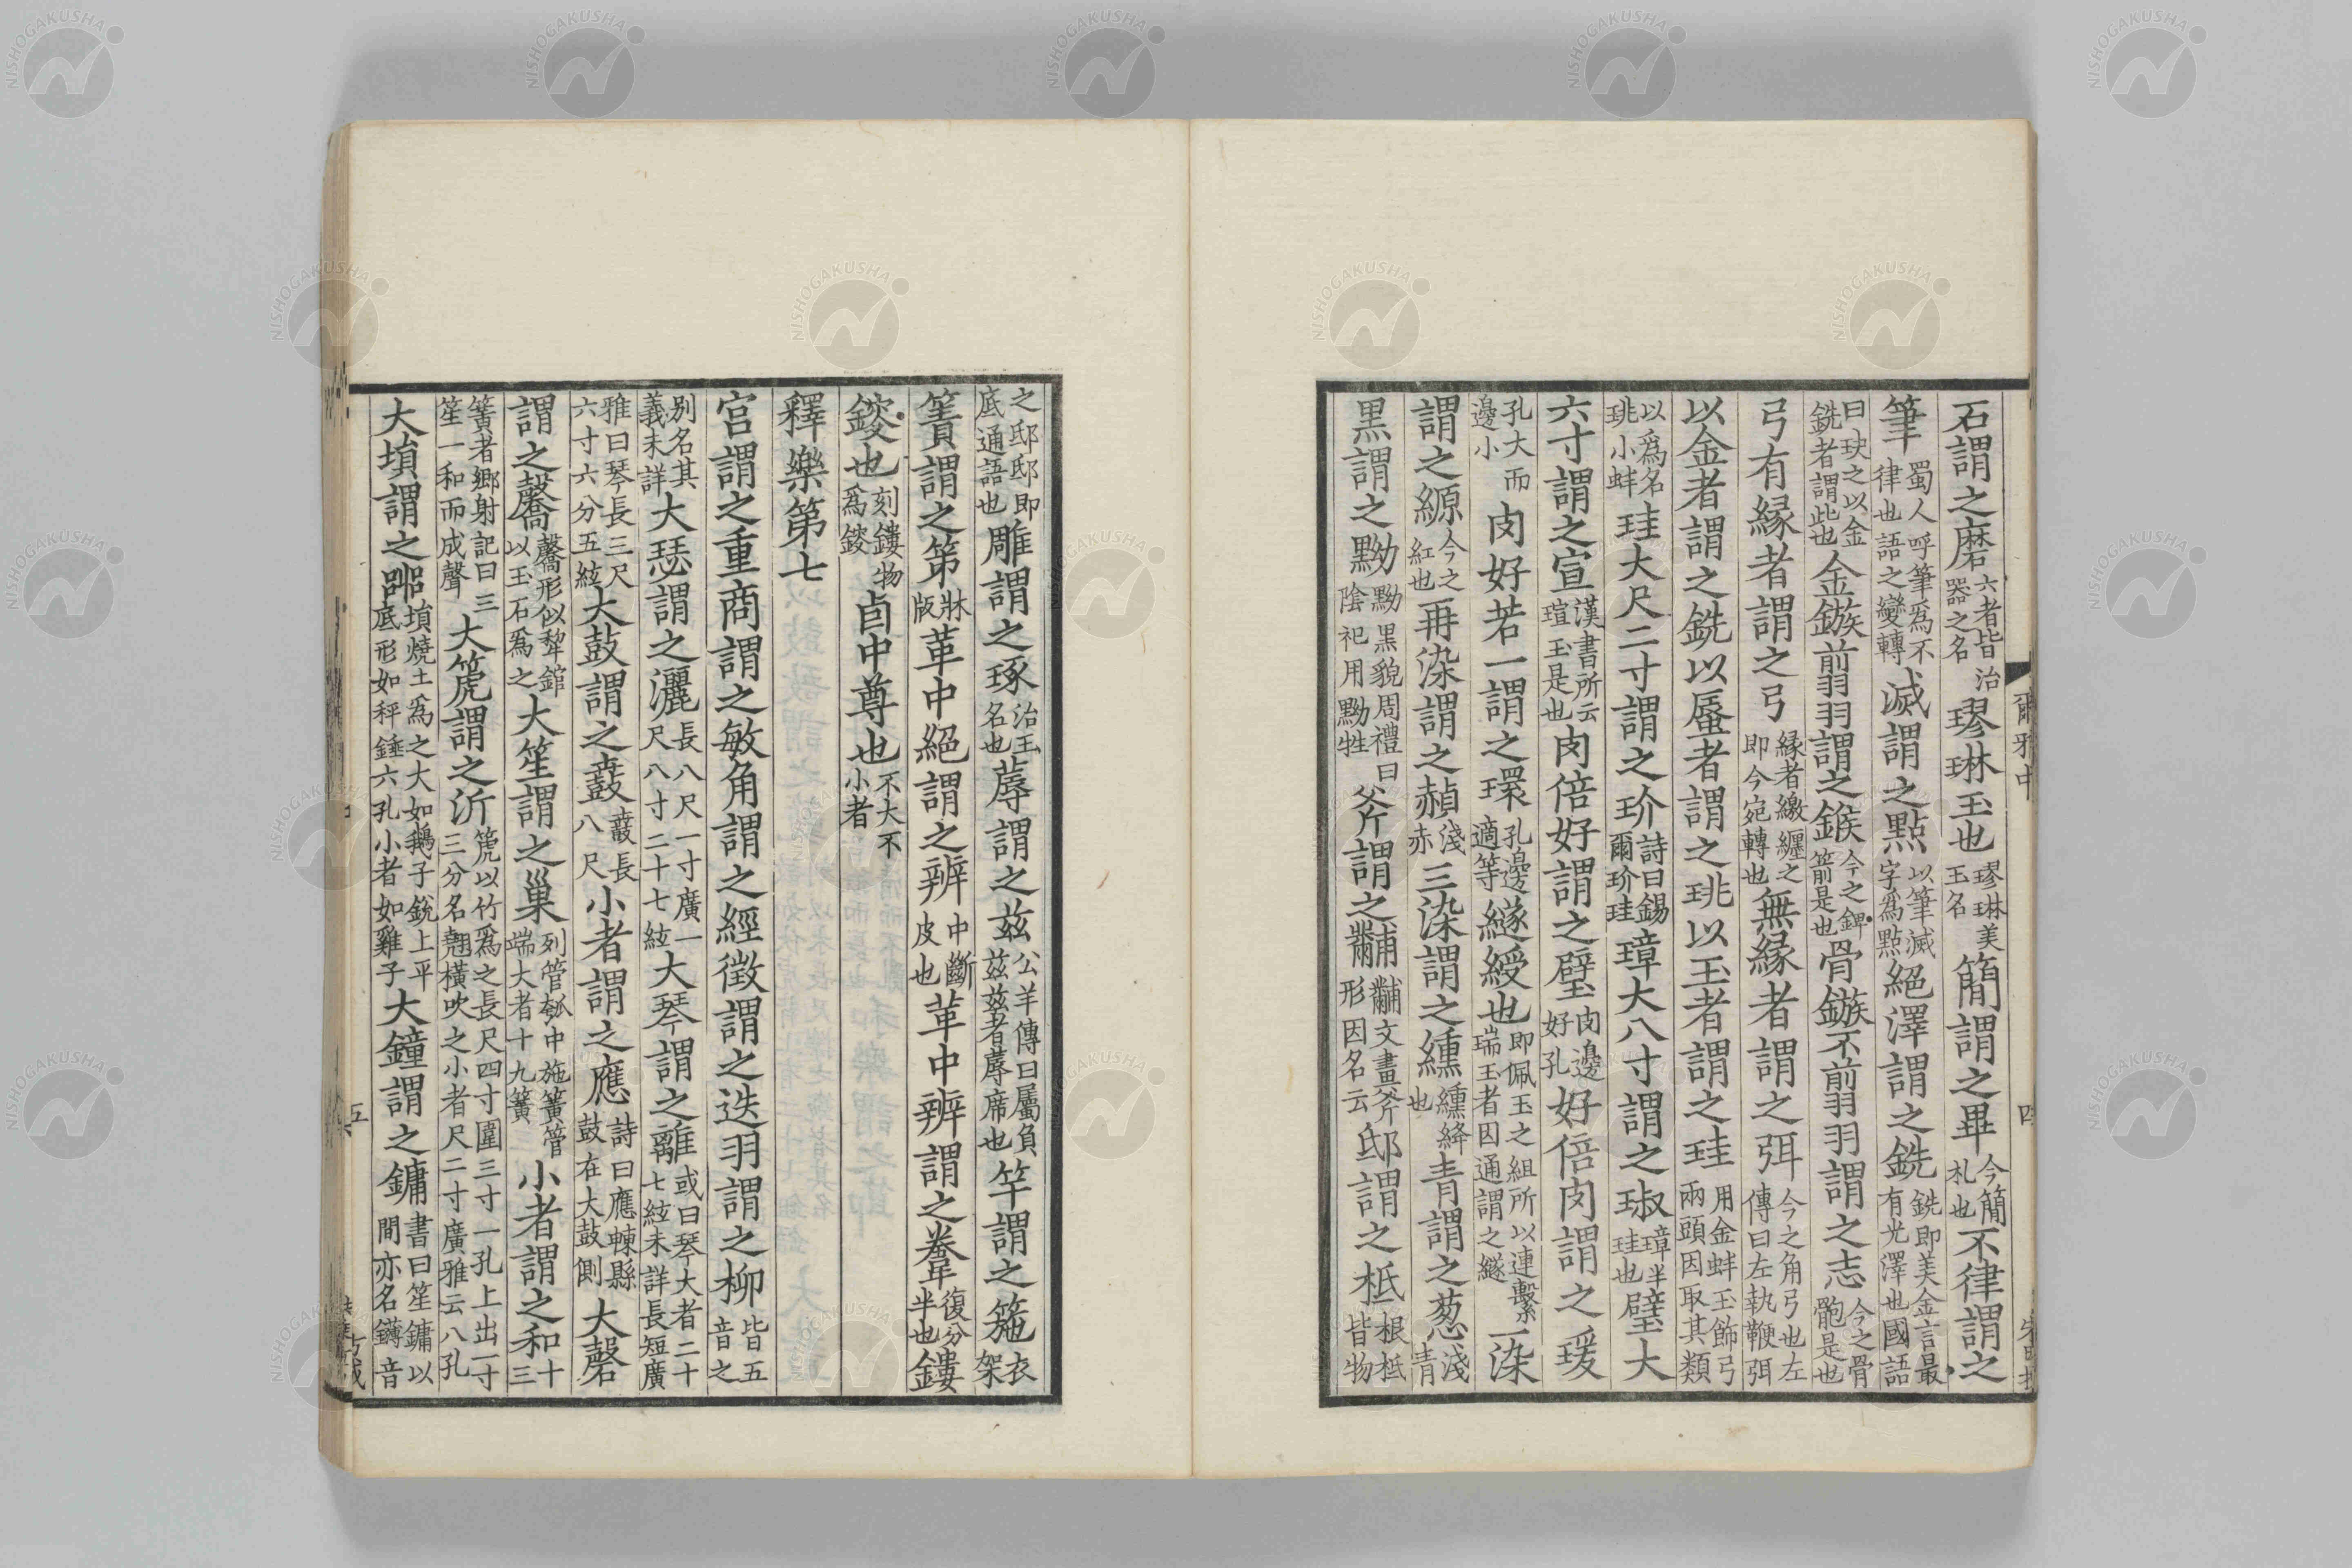 石謂之磨六者皆治器之名璆琳玉也璆琳美玉名簡謂之畢今簡札也不律謂之
筆蜀人呼筆爲不律也語之變轉滅謂之點以筆滅字爲點絕澤謂之銑銑即美金言最有光澤也國語
曰玦之以金銑者謂此也金鏃翦羽謂之鍭今之錍箭是也骨鏃不翦羽謂之志今之骨骲是也
弓有緣者謂之弓緣者繳纏之即今宛轉也無緣者謂之弭今之角弓也左傳曰左執鞭弭
以金者謂之銑以蜃者謂之珧以玉者謂之珪用金蚌玉飾弓兩頭因取其類
以爲名珧小蚌珪大尺二寸謂之玠詩曰錫爾玠珪璋大八寸謂之琡璋半珪也璧大
六寸謂之宣漢書所云瑄玉是也肉倍好謂之璧肉邊好孔好倍肉謂之瑗
孔大而邊小肉好若一謂之環孔邊適等繸綬也即佩玉之組所以連繫瑞玉者因通謂之繸一染
謂之縓今之紅也再染謂之赬淺赤三染謂之纁纁絳也青謂之葱淺青
黑謂之黝黝黑貌周禮曰陰祀用黝牲斧謂之黼黼文畫斧形因名云邸謂之柢根柢皆物
爾雅中
四
之邸邸即底通語也雕謂之琢治玉名也蓐謂之兹公羊傳曰屬負兹兹者蓐席也竿謂之箷衣架
簀謂之笫牀版革中絕謂之辨中斷皮也革中辨謂之韏復分半也鏤
鋑也刻鏤物爲鋑卣中尊也不大不小者
釋樂第七
宮謂之重商謂之敏角謂之經徵謂之迭羽謂之柳皆五音之
別名其義未詳大瑟謂之灑長八尺一寸廣一尺八寸二十七絃大琴謂之離或曰琴大者二十七絃未詳長短廣
雅曰琴長三尺六寸六分五絃大鼓謂之鼖鼖長八尺小者謂之應詩曰應朄縣鼓在大鼓側大磬
謂之毊毊形似犂錧以玉石爲之大笙謂之巢列管瓠中施簧管端大者十九簧小者謂之和十三
簧者鄉射記曰三笙一和而成聲大篪謂之沂篪以竹爲之長尺四寸圍三寸一孔上出一寸三分名翹橫吹之小者尺二寸廣雅云八孔
大塤謂之嘂塤燒土爲之大如鵝子銳上平底形如秤錘六孔小者如雞子大鐘謂之鏞書曰笙鏞以間亦名鑮音
五